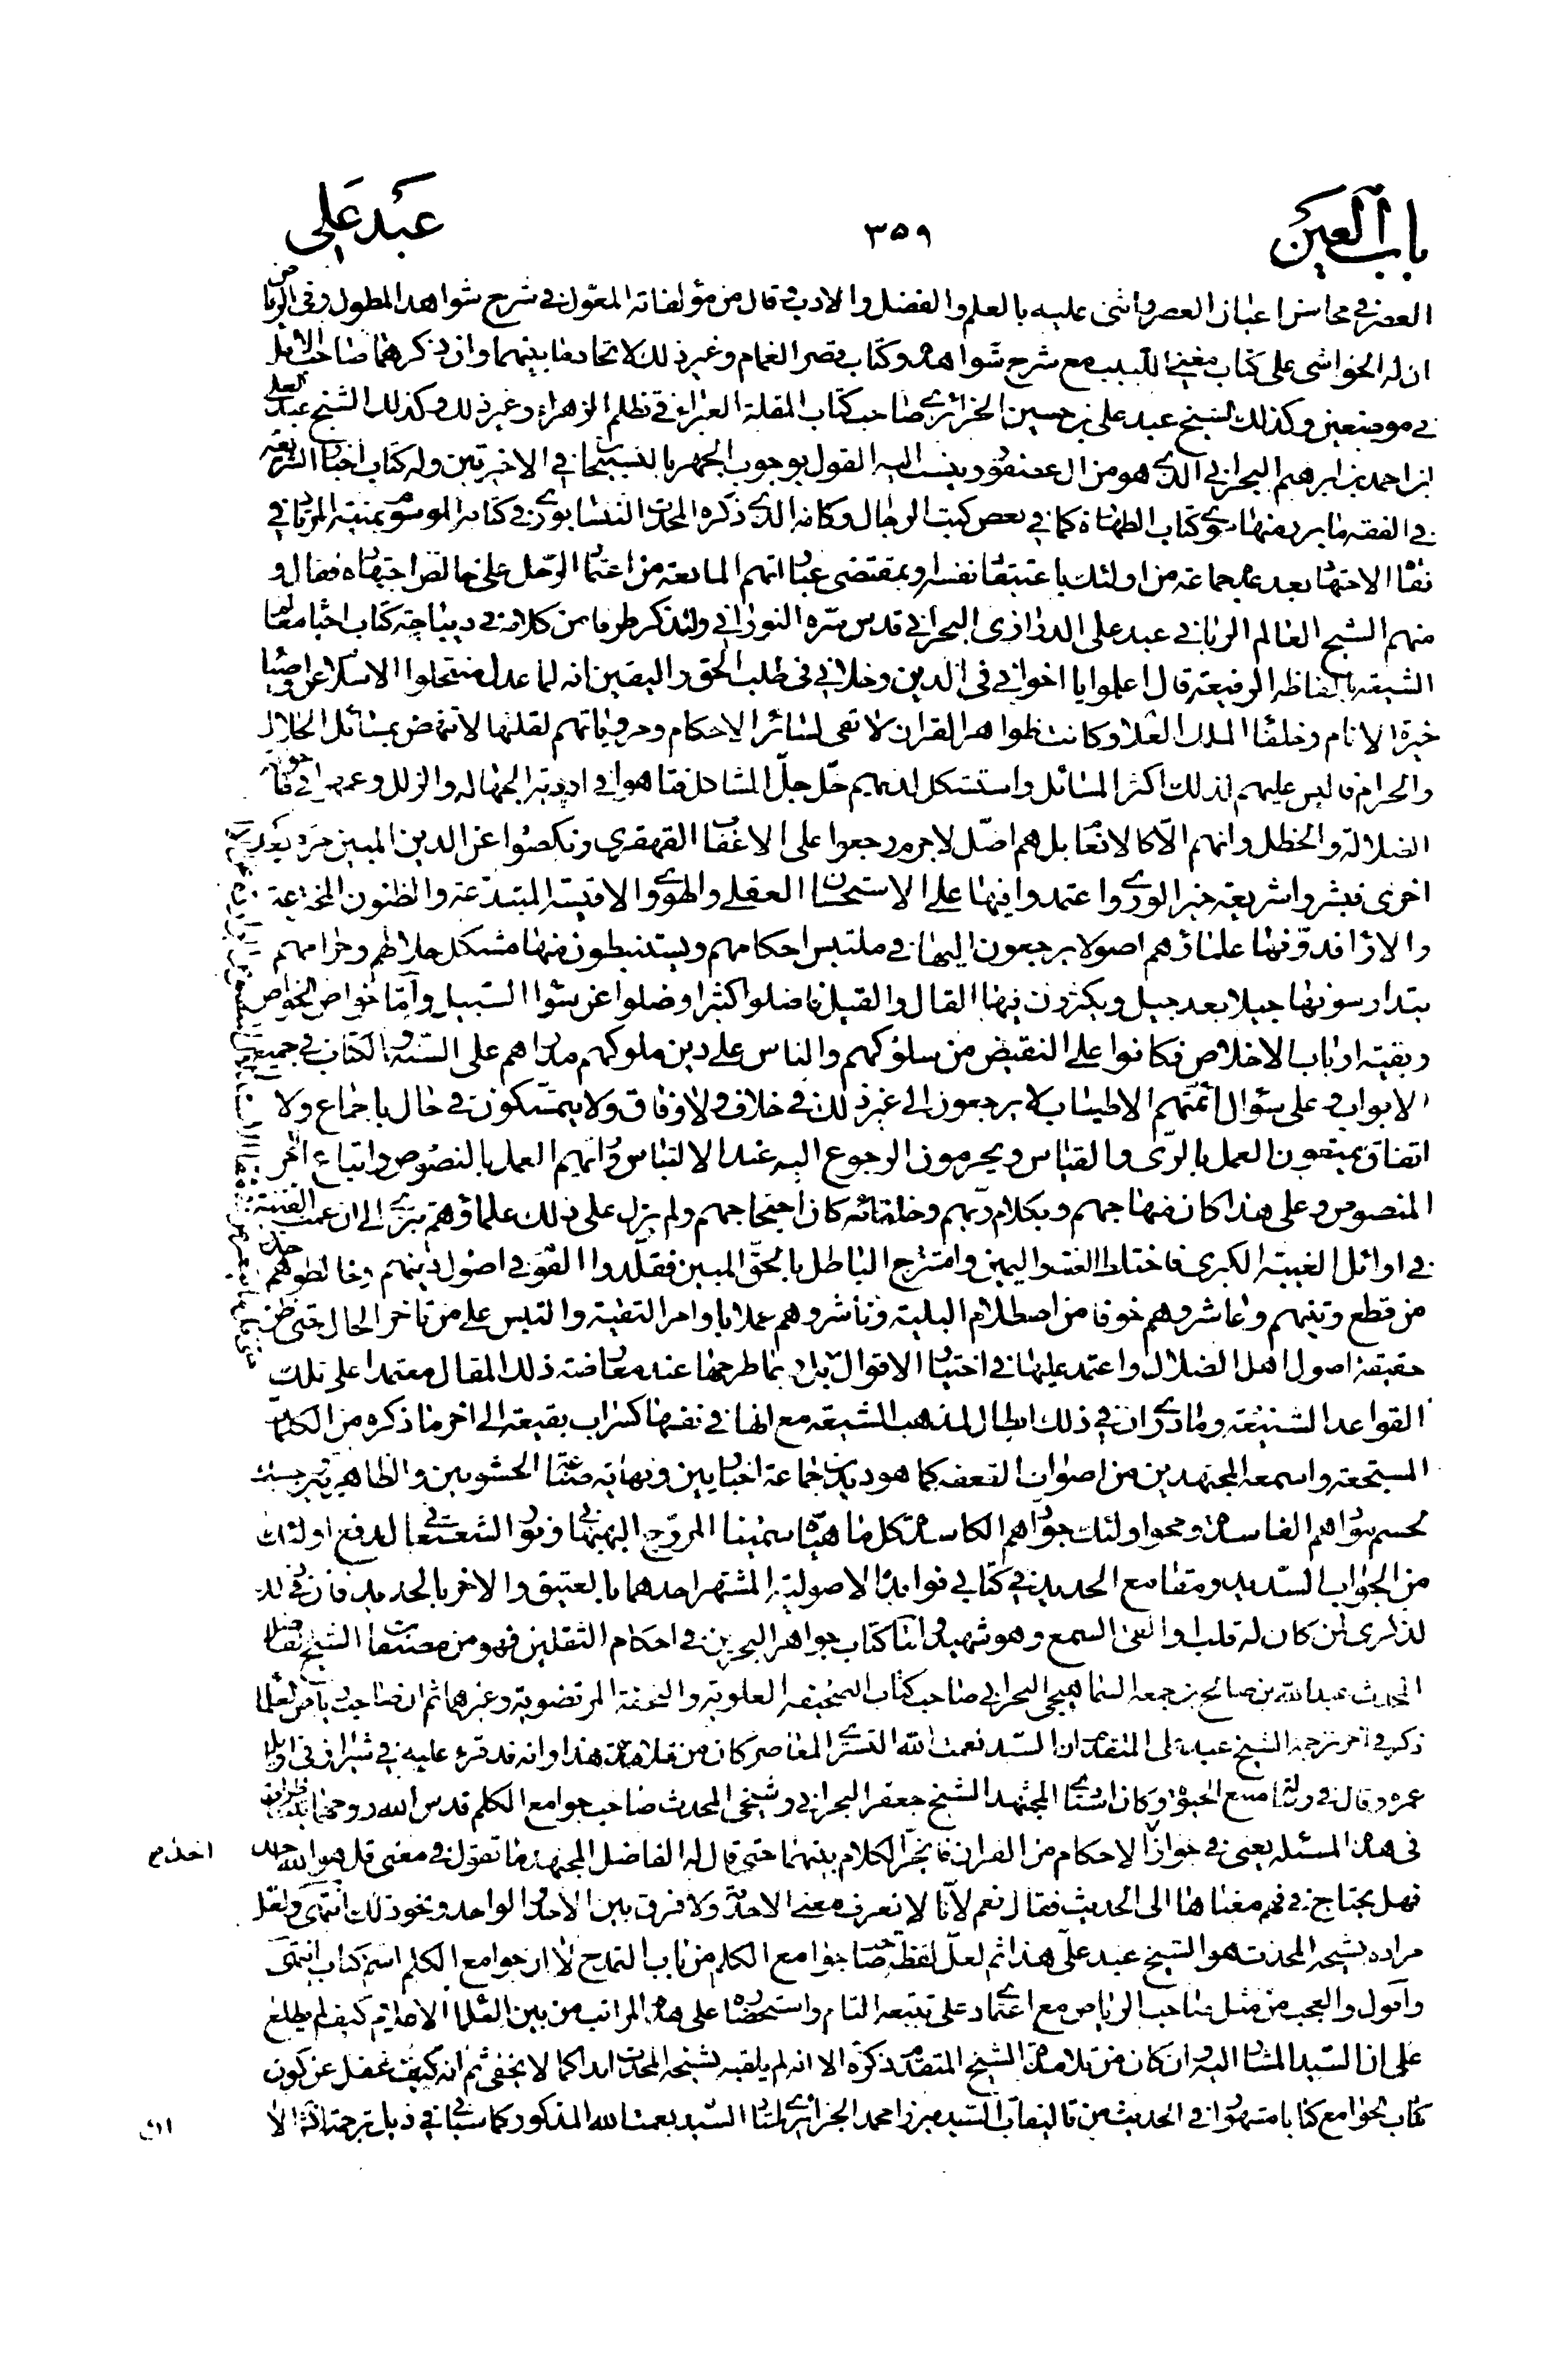 باب العين ٣٥٩ عبد علي
العصر في محاسن اعيان العصر واثنى عليه بالعلم والفضل والادب وقال من مؤلفاته المعول في شرح شواهد المطول وفي الرياض
ان له الحواشي على كتاب مغني اللبيب مع شرح شواهده وكتاب قصر الغمام وغير ذلك لاتحاد ما بينهما وان ذكرهما صاحب الامل
في موضعين وكذلك الشيخ عبد علي بن حسين الجزائري صاحب كتاب المقلة العبراء في تظلم الزهراء وغير ذلك وكذلك الشيخ عبد العلي
ابن احمد بن ابرهيم البحراني الذي هو من ال عصفور وينسب اليه القول بوجوب الجهر بالتسبيحات في الاخيرتين وله كتاب احياء الشريعة
في الفقه ما برز منها سوى كتاب الطهارة كما في بعض كتب الرجال وكانه الذي ذكره المحدث النيسابوري في كتابه الموسوم بمنية المرتاد في
نفاة الاجتهاد بعد عد جماعة من اولئك باعتبقاد نفسه وبمقتضى عباراتهم المانعة من اعتماد الرجل على خالص اجتهاده فقال و
منهم الشيخ العالم الرباني عبد علي الدرازي البحراني قدس سره النوراني ولنذكر طرفا من كلامه في ديباجة كتاب احياء معالم
الشيعة بالفاظه الرفيعة قال اعلموا يا اخواني في الدين وخلاني في طلب الحق واليقين انه لما عدل منتحلوا الاسلام عن اوصياء
خيرة الانام وخلفاء الملك العلام وكانت ظواهر القران لا تفي لسائر الاحكام ومروياتهم لقلتها لا تنهض بمسائل الحلال
والحرام فالبس عليهم لذلك اكثر المسائل واستشكل لديهم حل جل المشاكل فتاهوا في اودية الجهالة والزلل وعمهوا في
الضلالة والخطل وانهم الا كالانعام بل هم اضل لا جرم رجعوا على الاعقاب القهقرى ونكصوا عن الدين المبين مرة بعد
اخرى فبشروا شريعة خير الورى واعتمدوا فيها على الاستحسان العقلي والهوى والاقيسة المبتدعة والظنون المخترعة
والاراء فدونها علماؤهم اصولا يرجعون اليها في ملتبس احكامهم ويستنبطون منها مشكل حلالهم وحرامهم
يتدارسونها جيلا بعد جيل ويكثرون فيها القال والقيل فاضلوا كثيرا وضلوا عن سواء السبيل واما خواص الخواص
وبقية ارباب الاخلاص فكانوا على النقيض من سلوكهم والناس على دين ملوكهم مدارهم على السنة والكتاب في جميع
الابواب وعلى سؤال ائمتهم الاطياب لا يرجعون الى غير ذلك في خلاف ولا وفاق ولا يتمسكون في حال باجماع ولا
اتفاق يمنعون العمل بالراي والقياس ويحرمون الرجوع اليه عند الالتباس ودابهم العمل بالنصوص واتباع اثر
المنصوص وعلى هذا كان منهاجهم وبكلام ربهم وخلفائه كان احتجاجهم ولم يزل على ذلك علماؤهم الى ان عمت الفتنة
في اوائل الغيبة الكبرى فاختلط الغث واليمين وامتزج الباطل بالحق المبين فقلدوا القوم في اصول دينهم وخالطوهم
من قطع وتينهم وعاشروهم خوفا من اصطلام البلية وناشروهم عملا باوامر التقية والتبس على من تاخر الحال حتى ظن
حقيقة اصول اهل الضلال واعتمد عليها في اختيار الاقوال بل ربما طرحها عند معارضة ذلك المقال معتمدا على تلك
القواعد الشنيعة وما درى ان في ذلك ابطال لمذهب الشيعة مع انها في نفسها كسراب بقيعة الى اخر ما ذكره من الكلمات
المستجمعة واسمعه المجتهدين من اصوات القعقعة كما هو ديدن جماعة اخباريين ونهاية صنعة الحشويين والظاهرية حيث
لحسم موادهم الفاسدة ومحو اولئك جوادهم الكاسدة كل ما هيأه سمينا المروج البهبهاني ونوره الشعشعاني لدفع اولئك
من الجواب السديد ومقامع الحديد في كتابي فوائده الاصولية المشتهر احدهما بالعتيق والاخر بالجديد فان في ذلك
لذكرى لمن كان له قلب او القى السمع وهو شهيد واما كتاب جواهر البحرين في احكام الثقلين فهو من مصنفات الشيخ الفاضل
المحدث عبد الله بن صالح بن جمعة السماهيجي البحراني صاحب كتاب الصحيفة العلوية والتحفة المرتضوية وغيرهما ثم ان صاحب رياض العلماء
ذكر في اخر ترجمة الشيخ عبد علي المتقدم ان السيد نعمت الله التستري المعاصر كان من تلامذة هذا وانه قد قرء عليه في شيراز في اوائل
عمره وقال في رسالة منبع الحيوة وكان استاذي المجتهد الشيخ جعفر البحراني وشيخي المحدث صاحب جوامع الكلم قدس الله روحيهما
في هذه المسئلة يعني في جواز اخذ الاحكام من القران فانجر الكلام بينهما حتى قال له الفاضل المجتهد ما تقول في معنى قل هو الله احد
فهل يحتاج في فهم معناها الى الحديث فقال نعم لانا لا نعرف معنى الاحدية ولا فرق بين الاحد والواحد ونحو ذلك انتهى ولعل
مراده بشيخه المحدث هو الشيخ عبد علي هذا ثم لعل لفظة صاحب جوامع الكلم من باب التمدح لا ان جوامع الكلم اسم كتاب انتهى
واقول والعجب من مثل صاحب الرياض مع اعتمادي على تتبعه التام واستحضاره على هذه المراتب من بين العلماء الاعلام كيف لم يطلع
على ان السيد المشار اليه وان كان من تلامذة الشيخ المتقدم ذكره الا انه لم يلقبه بشيخه المحدث ابدا كما لا يخفى ثم انه كيف غفل عن كون
كتاب الجوامع كتابا مشهورا في الحديث من تاليفات السيد ميرزا محمد الجزائري استاد السيد نعمت الله المذكور كما سياتي في ذيل ترجمته انشاء الا